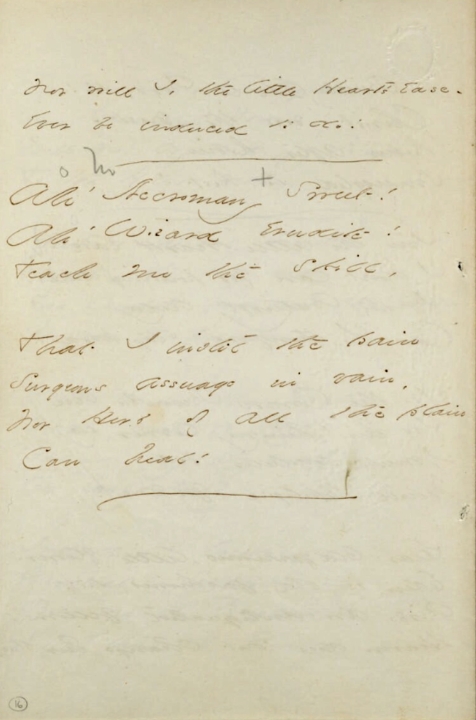 Nor will I, the little Heart's Ease -
Ever be induced to do!
o No +
Ah' Necromancy Sweet!
Ah' Wizard Erudite!
Teach me the Skill,
That I instil the pain
Surgeons assuage in vain,
Nor Herb of all the plain
Can heal!
16